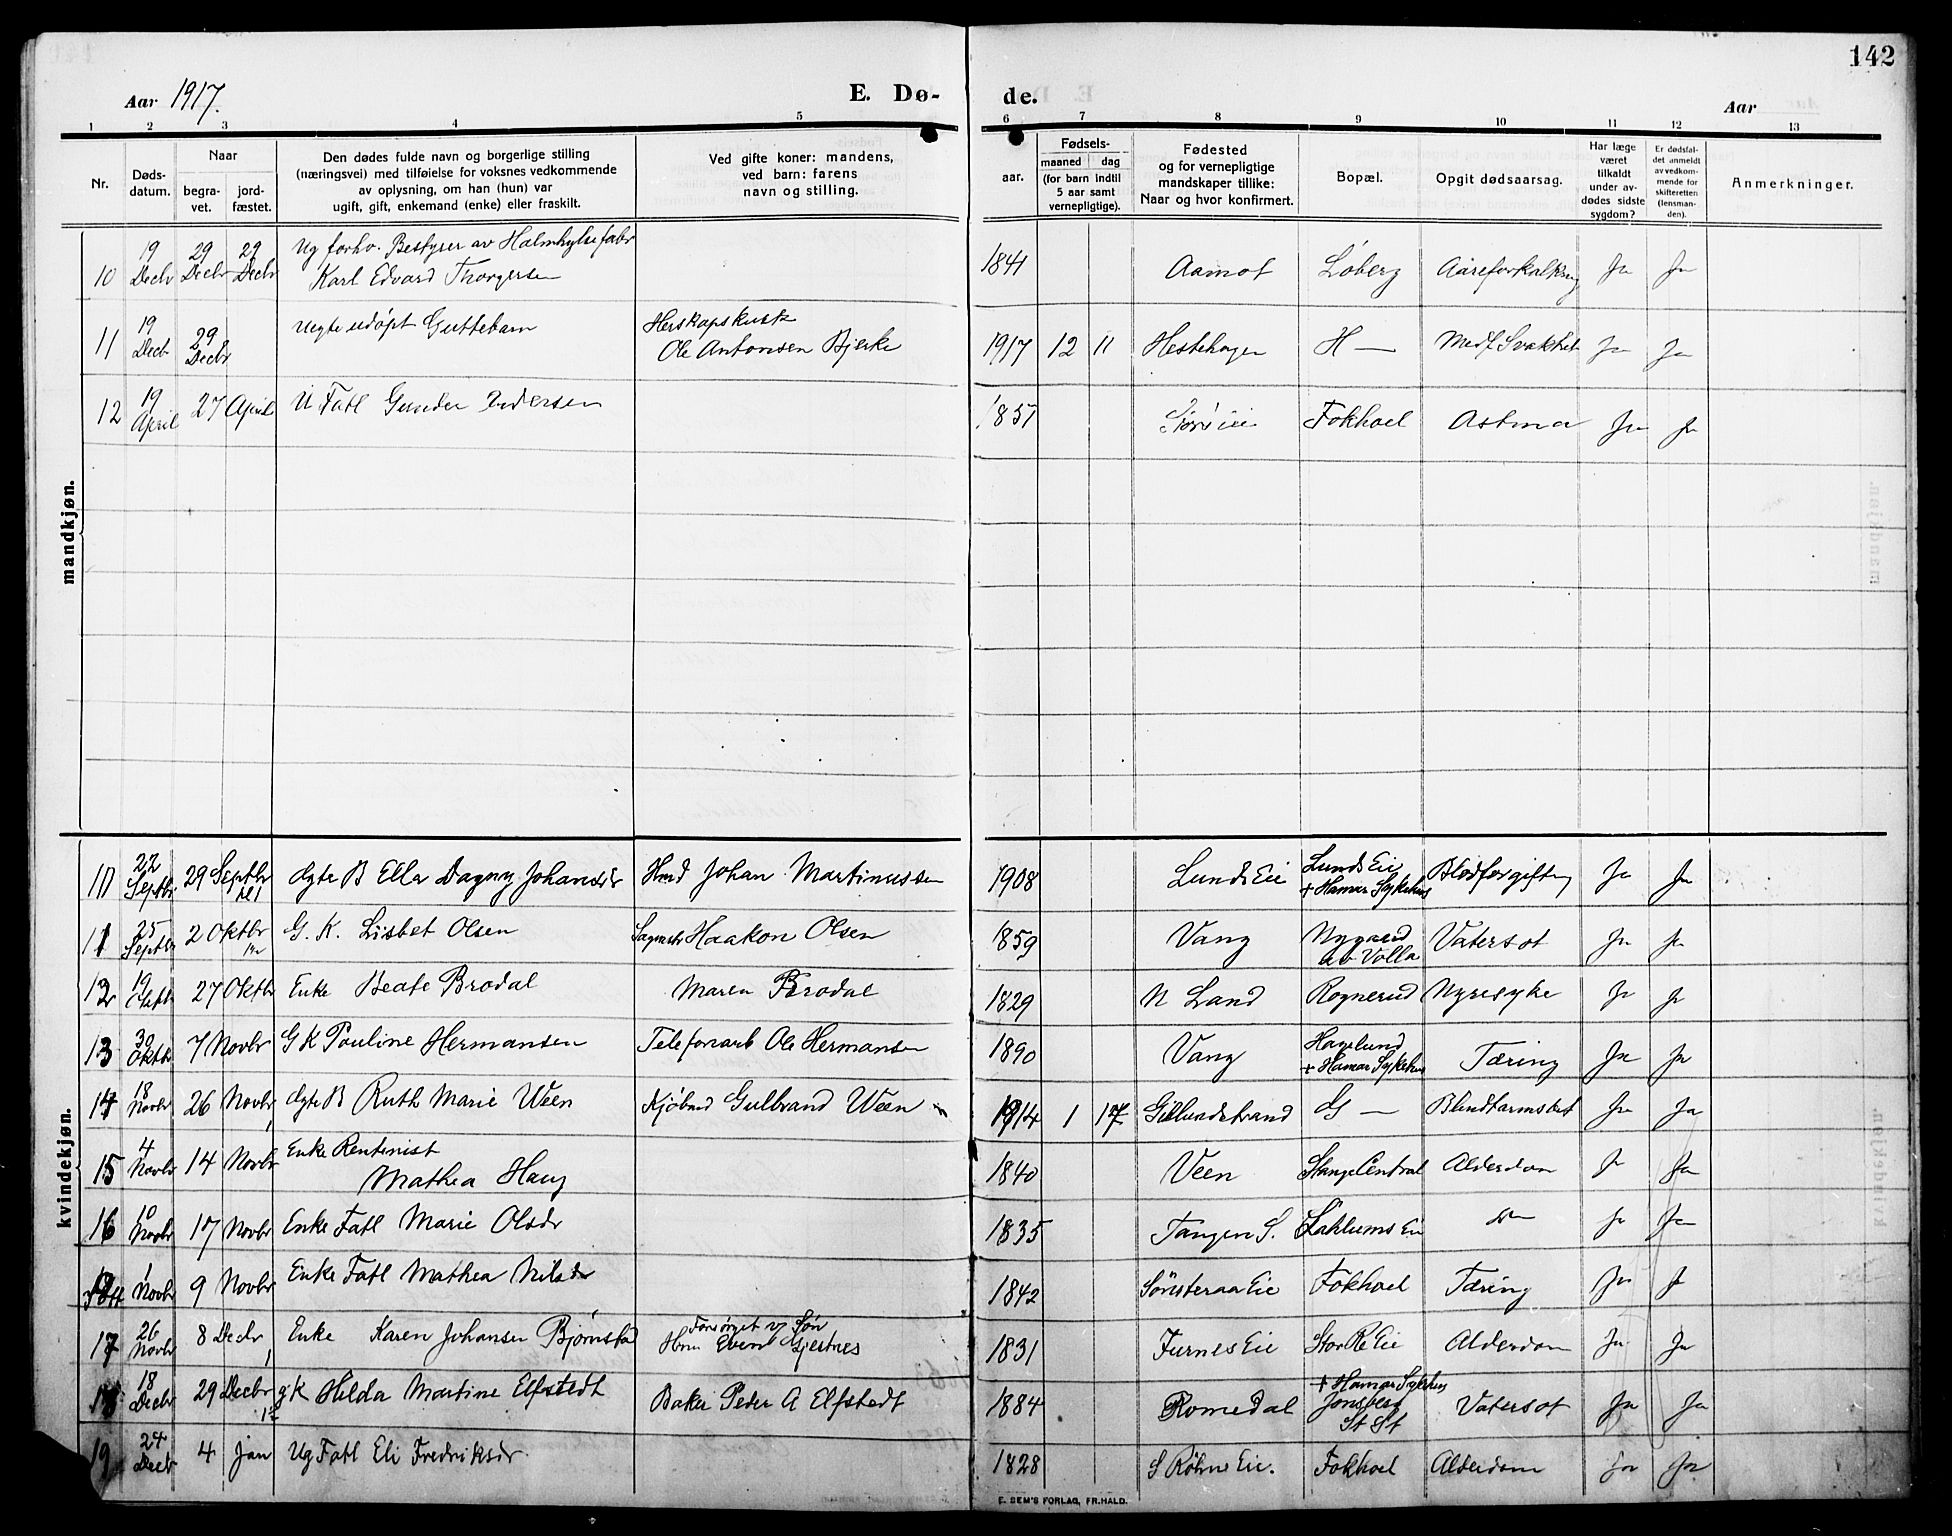 142
Aar 1917.
E. Dø- de.
Aar
1 2 3 4 5 6 7 8 9 10 11 12 13
Nr.
Døds-
datum.
Naar
begra-
vet.
jord-
fæstet.
Den dødes fulde navn og borgerlige stilling
(næringsvei) med tilføielse for voksnes vedkommende
av oplysning, om han (hun) var
ugift, gift, enkemand (enke) eller fraskilt.
Ved gifte koner: mandens,
ved barn: farens
navn og stilling.
Fødsels-
aar.
maaned dag
(for barn indtil
5 aar samt
vernepligtige).
Fødested
og for vernepligtige
mandskaper tillike:
Naar og hvor konfirmert.
Bopæl.
Opgit dødsaarsag.
Har læge
været
tilkaldt
under av-
dødes sidste
sygdom?
Er dødsfal-
det anmeldt
av vedkom-
mende for
skifteretten
(lensman-
den).
Anmerkninger.
mandkjøn.
10 19 Decbr 29 Decbr 29 Decbr Ug forhv. Bestyrer av Halmhylsefabr
Karl Edvard Thorgersen 1841 Aamot Løberg Aareforkalkning Ja Ja
11 19 Decbr 29 Decbr Uegte udøpt Guttebarn Herskapskusk
Ole Antonsen Bjerke 1917 12 11 Hestehagen H — Medf. Svakhet Ja Ja
12 19 April 27 April U Fatl Gunder Andersen 1851 Fokhoel Astma Ja Ja
kvindekjøn.
10 22 Septbr 29 Septbr Ægte B Ella Dagny Johansdr Hmd Johan Martinussen 1908 Lunds Eie Lunds Eie
+ Hamar Sykehus Blodforgiftng Ja Ja
11 25 Septbr 2 Oktbr G. K. Lisbet Olsen Sagmstr Haakon Olsen 1859 Vang Nygaard
av Volla Vatersot Ja Ja
12 19 Oktbr 27 Oktbr Enke Beate Brodal Maren Brodal 1829 N Land Rognerud Nyresyke Ja Ja
13 30 Oktbr 7 Novbr G K Pauline Hermansen Telefonarb Ole Hermansen 1890 Vang Hagelund
+ Hamar Sykehus Tæring Ja Ja
14 18 Novbr 26 Novbr Ægte B Ruth Marie Ween Kjøbmd Gulbrand Ween 1914 1 17 Gillundstrand G — Blindtarmsbet Ja Ja
15 4 Novbr 14 Novbr Enke Rentenist
Mathea Haug 1840 Veen Stange Central Alderdom Ja Ja
16 10 Novbr 17 Novbr Enke Fatl Marie Olsdr 1835 Tangen S. Saklums Eie Ja Ja
1 Novbr 9 Novbr Enke Fatl Mathea Nilsdr 1842 Sønsteraa Eie Fokhoel Tæring Ja Ja
17 26 Novbr 8 Decbr Enke Karen Johansen Bjørnstad Forsørget av Søn
Hmn Even Gjestnes 1831 Furnes Eie Stor Re Eie Alderdom Ja Ja
18 18 Decbr 29 Decbr g K Hilda Martine Elfstedt Baker Peder A Elfstedt 1884 Romedal + Hamar Sykehus
Jønsberg
St St Vatersot Ja Ja
19 24 Decbr 4 Jan Ug Fatl Eli Fredriksdr. 1828 S Røhne Eie. Fokhoel Alderdom Ja Ja
E. SEM'S FORLAG, FR.HALD.